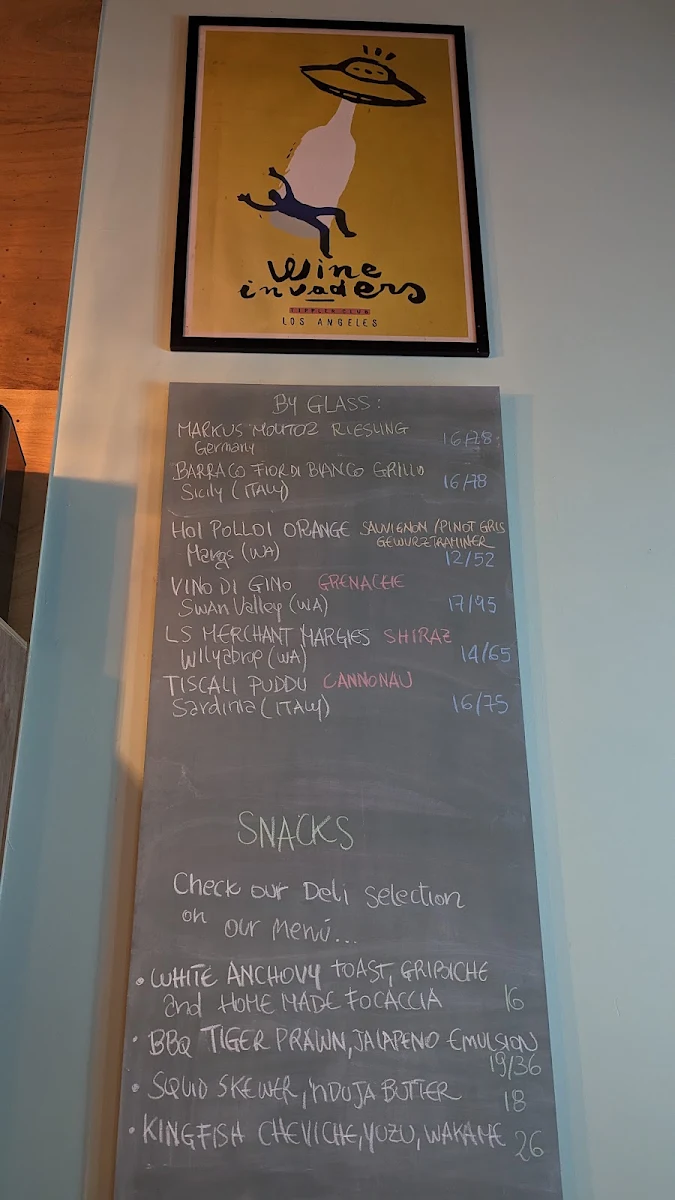 Wine
invaders
TIPPLER CLUB
LOS ANGELES
BY GLASS:
MARKUS MOLITOZ RIESLING
Germany 16/78
BARRACO FIOR DI BIANCO GRILLO
Sicily (ITALY) 16/78
HOI POLLOI ORANGE SAUVIGNON/PINOT GRIS
GEWURZTRAMINER
Margs (WA) 12/52
VINO DI GINO GRENACHE
SWAN Valley (WA) 17/95
LS MERCHANT MARGIES SHIRAZ
Wilyabrop (WA) 14/65
TISCALI PUDDU CANNONAU
Sardinia (ITALY) 16/75
SNACKS
Check our Deli selection
on our Menú...
• WHITE ANCHOVY TOAST, GRIBICHE
and HOME MADE FOCACCIA 16
• BBQ TIGER PRAWN, JALAPENO EMULSION
19/36
• SQUID SKEWER, 'NDUJA BUTTER 18
• KINGFISH CHEVICHE, YUZU, WAKAME 26